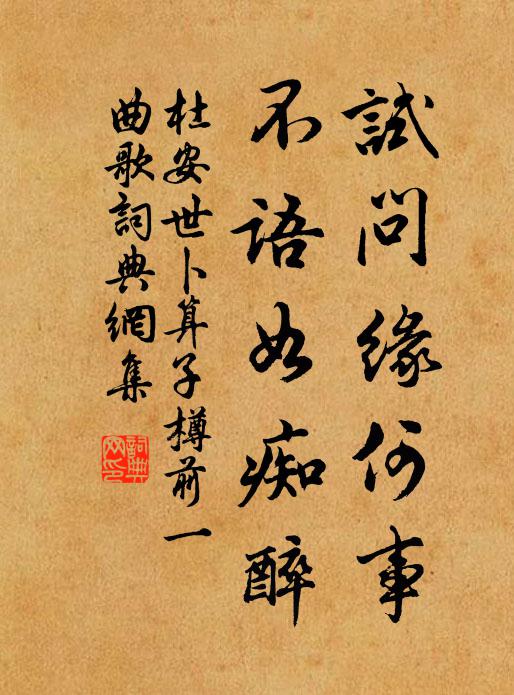 試問緣何事
不語如痴醉
杜安世卜算子樽前一
曲歌詞典網集
詞典
网印